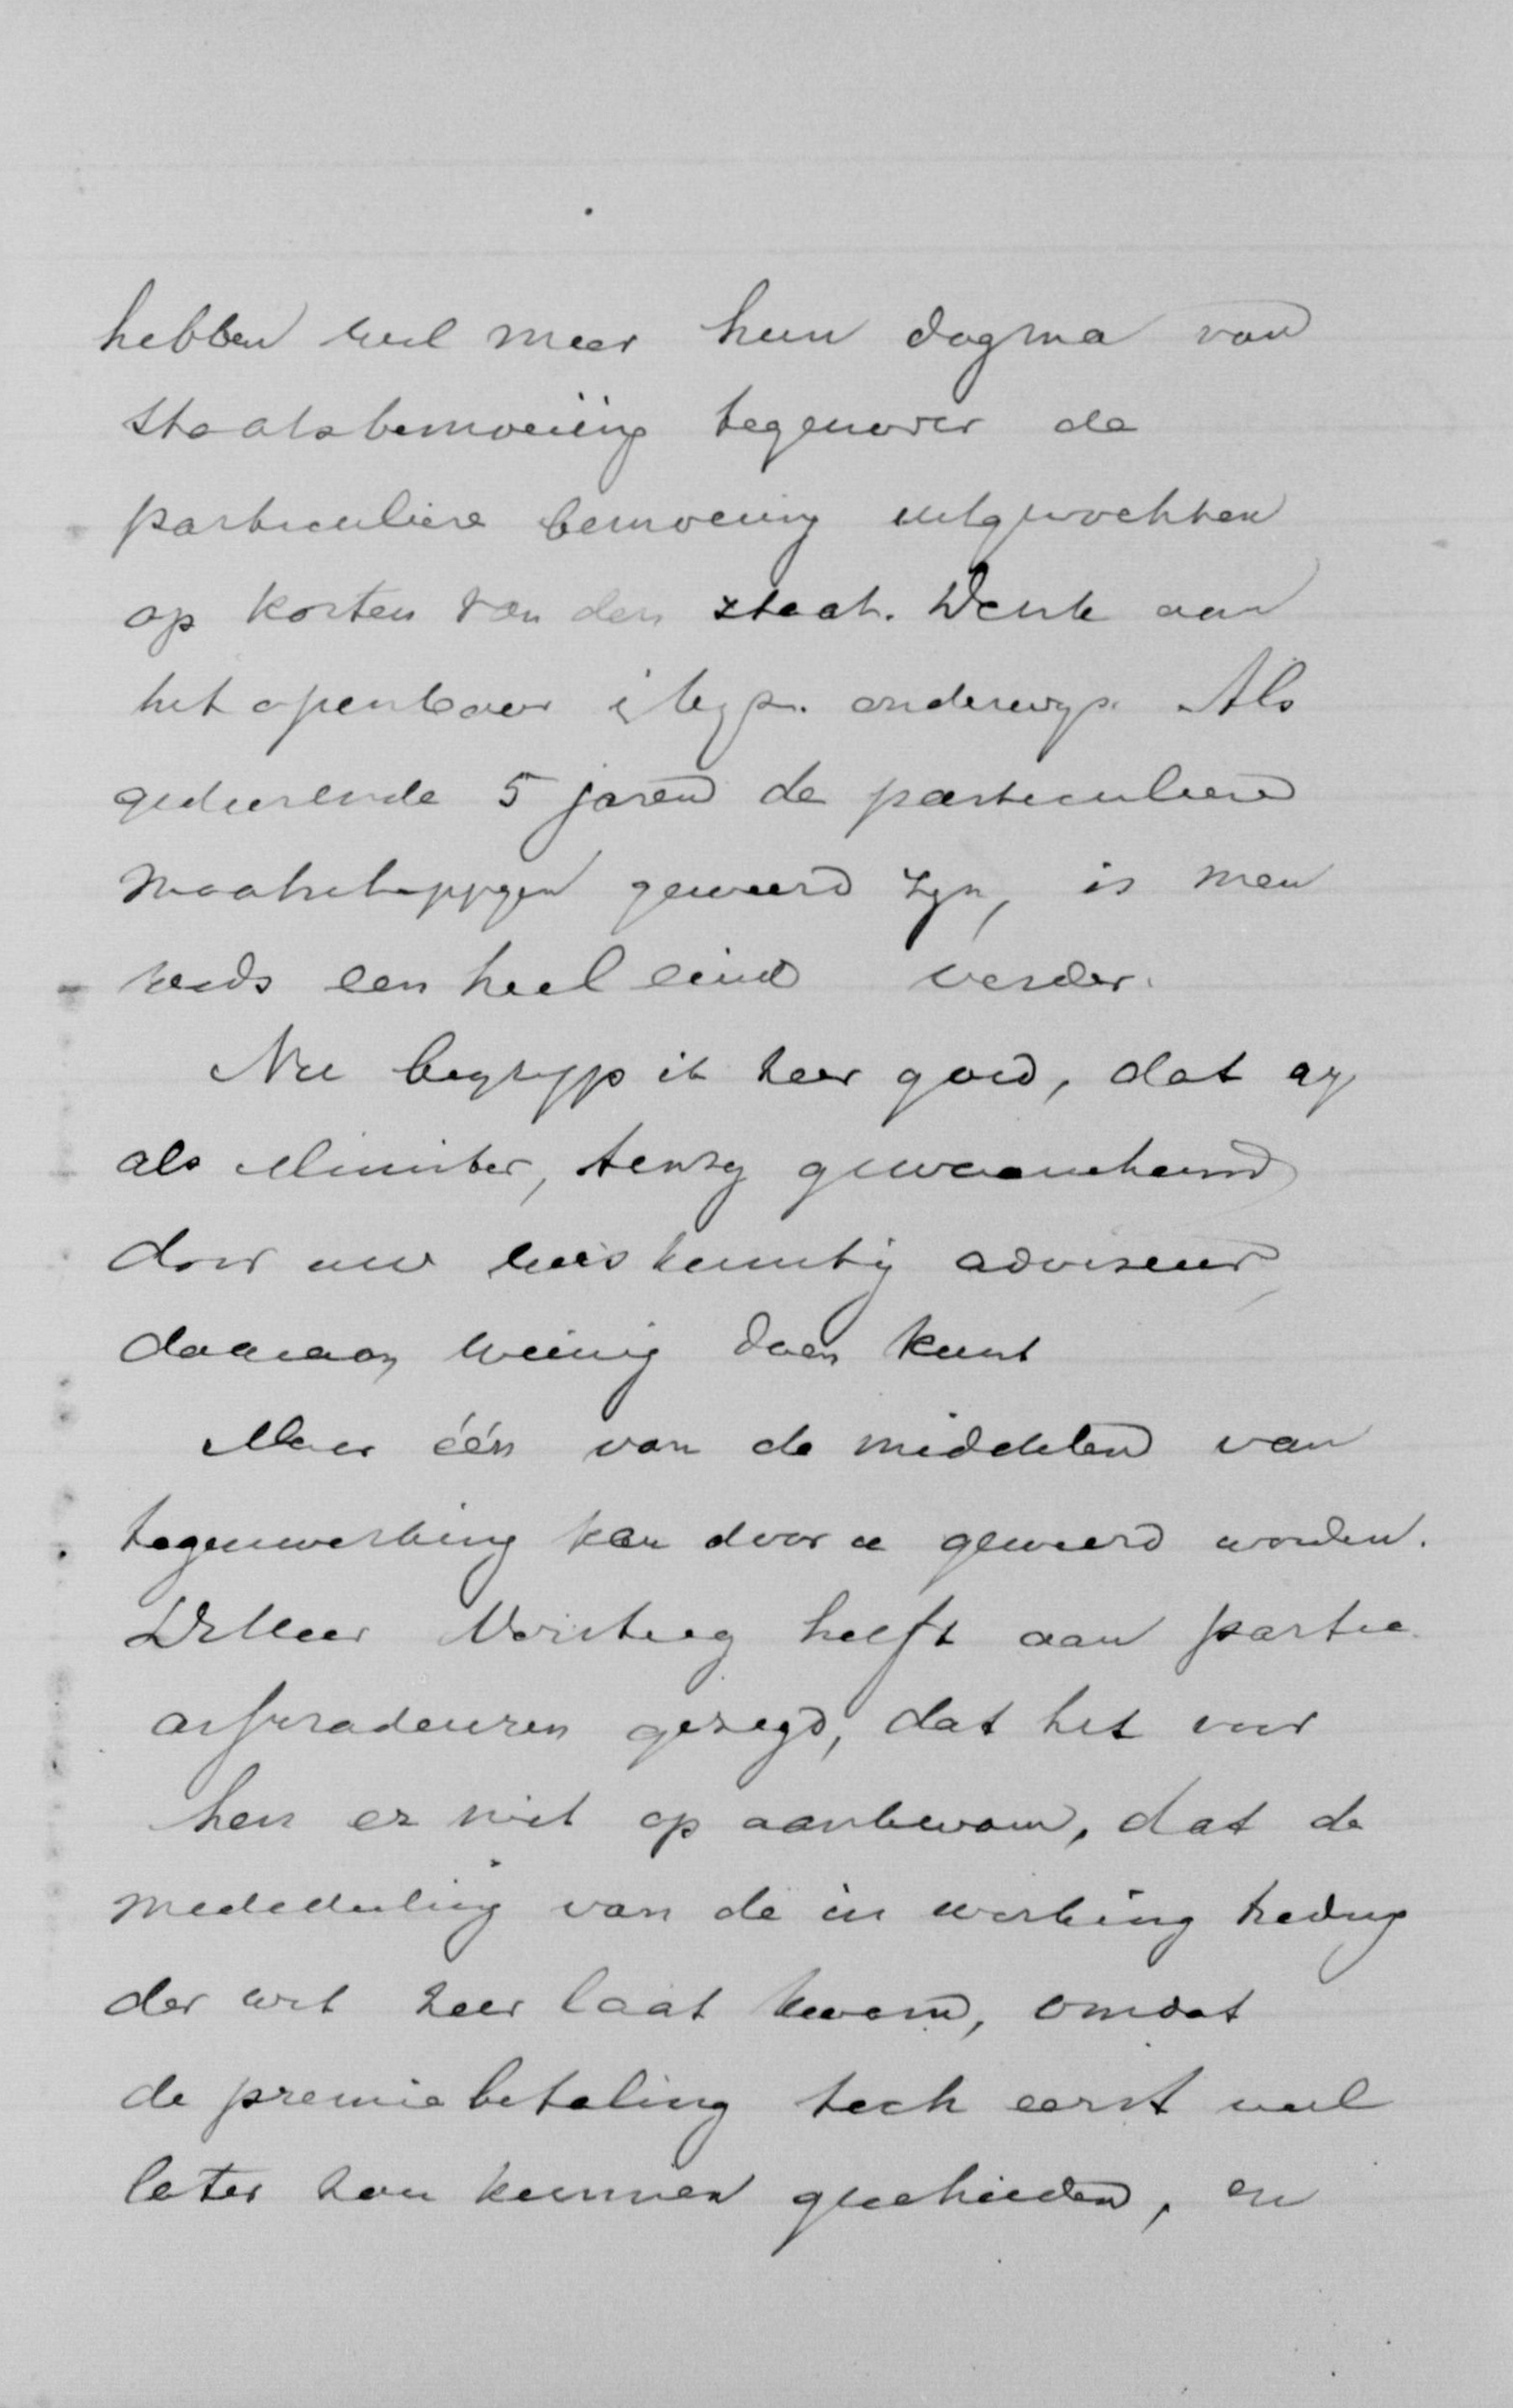 hebben veel meer hun dogma van
staatsbemoeiïng tegenover de
particuliere bemoeiing uitgevochten
op kosten van den staat. Denk aan
het openbaar & byz. onderwys. Als
gedurende 5 jaren de particuliere
maatschappyen geweerd zyn, is men
reeds een heel eind verder.
Nu begryp ik zeer goed, dat gy
als Minister, tenzy gewaarschuwd
door uw wiskundig adviseur,
daaraan weinig doen kunt
Maar één van de middelen van
tegenwerking kan door u geweerd worden.
De Heer Versteeg heeft aan partic.
assuradeuren gezegd, dat het voor
hen er niet op aankwam, dat de
mededeeling van de in werking treding
der wet zeer laat kwam, omdat
de premiebetaling toch eerst veel
later zou kunnen geschieden, en